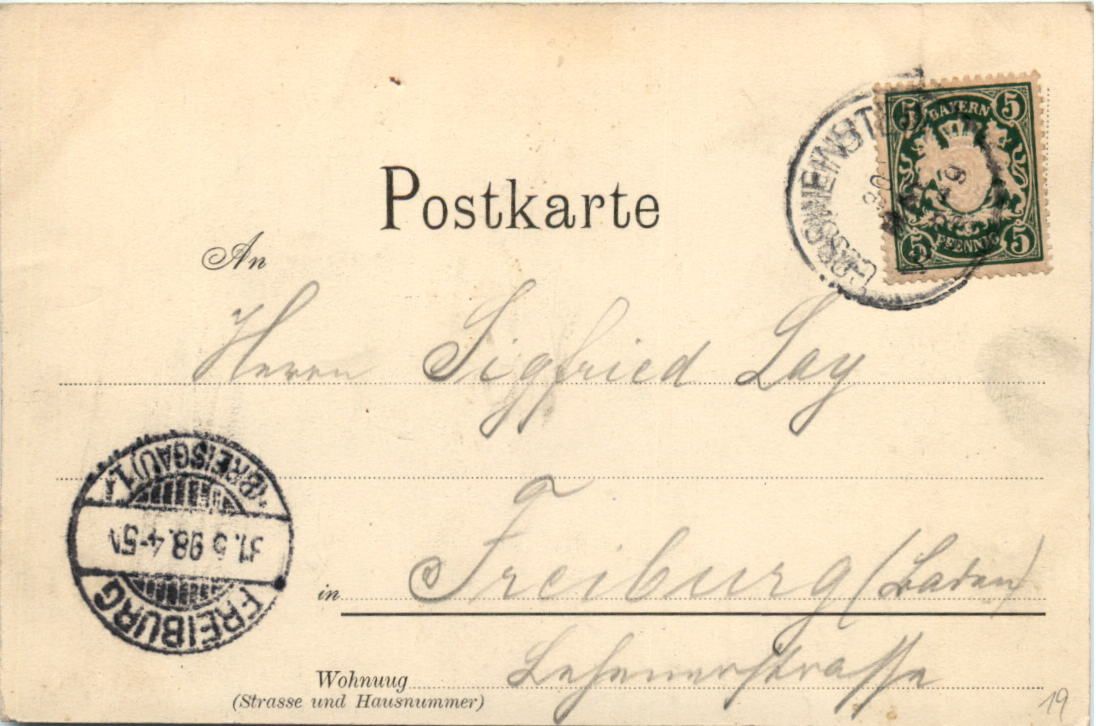 Postkarte
5 BAYERN 5
5 PFENNIG 5
30
MAI
An
Herrn Sigfried Lay
in Freiburg (Baden)
Wohnuug Lehenerstrasse
(Strasse und Hausnummer)
FREIBURG
31.5.98.4-5N
(BREISGAU) 1.
19